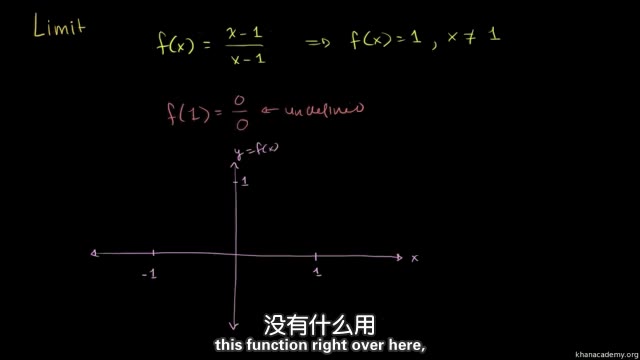 Limit
f(x) = x-1 / x-1 ⇒ f(x) = 1 , x ≠ 1
f(1) = 0/0 ← undefined
y = f(x)
1
x
-1 1
没有什么用
this function right over here,
khanacademy.org